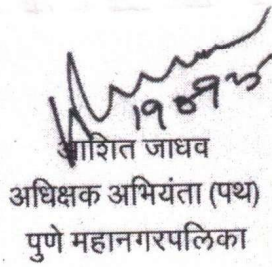 आशित जाधव
अधिक्षक अभियंता (पथ)
पुणे महानगरपलिका